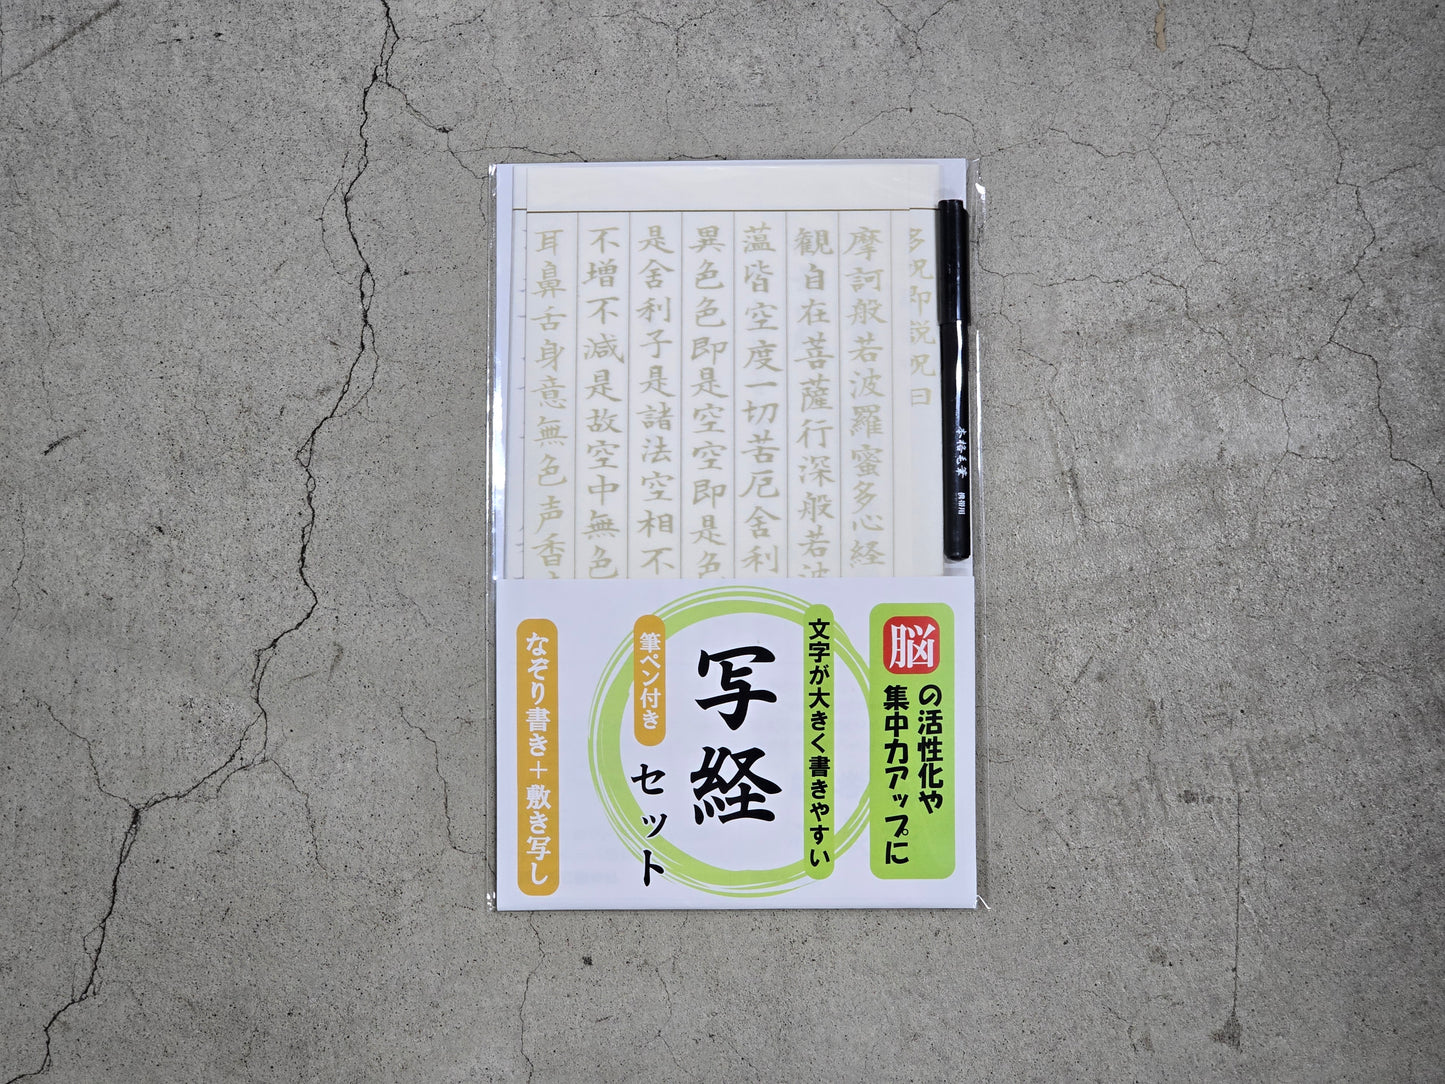 多呪即説呪曰
摩訶般若波羅蜜多心経
観自在菩薩行深般若波
薀皆空度一切苦厄舍利
異色色即是空空即是色
是舍利子是諸法空相不
不増不減是故空中無色
耳鼻舌身意無色声香
本格毛筆 携帯用
脳の活性化や
集中力アップに
文字が大きく書きやすい
写経
セット
筆ペン付き
なぞり書き+敷き写し